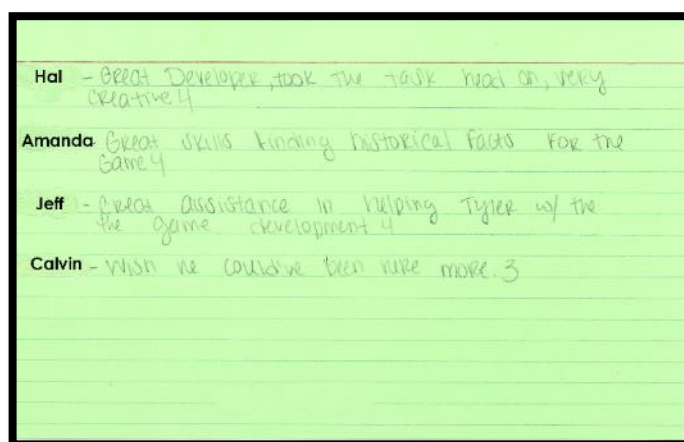 Hal - Great Developer, took the task head on, very
creative 4
Amanda Great skills finding historical facts for the
Game 4
Jeff - Great assistance in helping Tyler w/ the
the game development 4
Calvin - Wish he could've been here more. 3